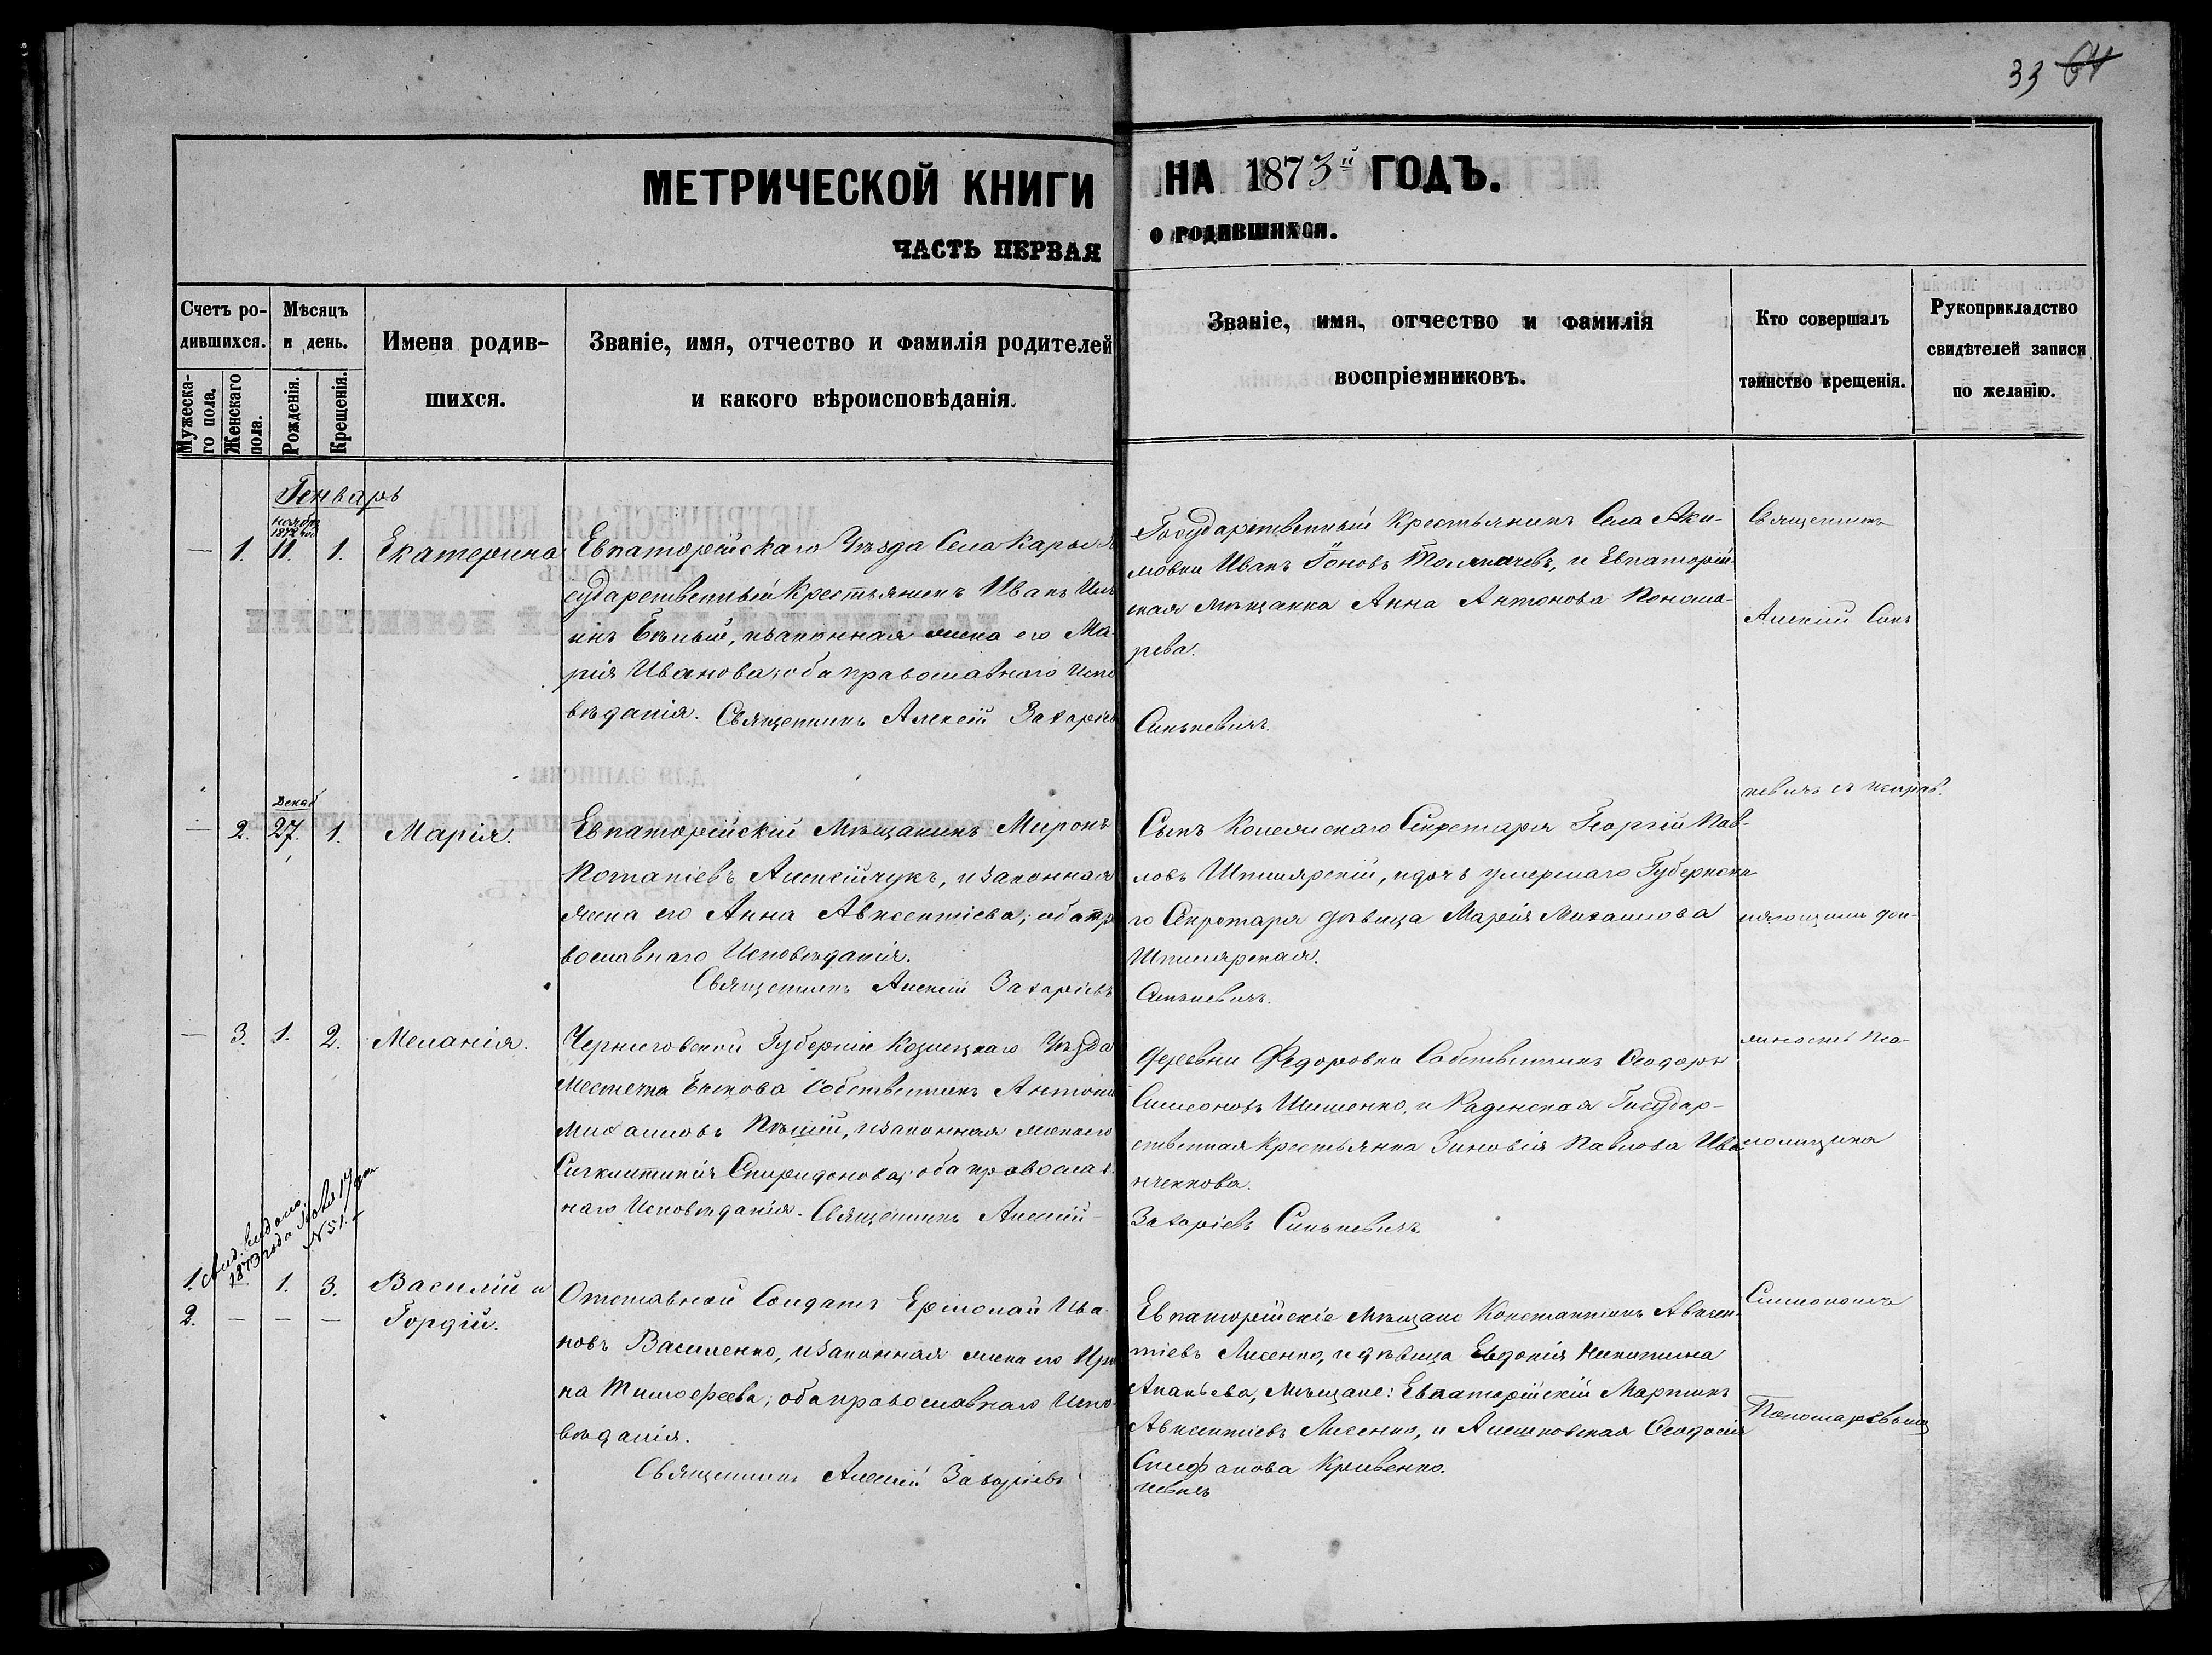 33 64
МЕТРИЧЕСКОЙ КНИГИ НА 1873й ГОДЪ.
ЧАСТЬ ПЕРВАЯ О РОДИВШИХСЯ.
Счетъ ро-
дившихся.
Мужеска-
го пола.
Женскаго
пола.
Мѣсяцъ
и день.
Рожденія.
Крещенія.
Имена родив-
шихся.
Званіе, имя, отчество и фамилія родителей
и какого вѣроисповѣданія.
Званіе, имя, отчество и фамилія
воспріемниковъ.
Кто совершалъ
таинство крещенія.
Рукоприкладство
свидѣтелей записи
по желанію.
Генварь
ноября
1872
— 1. 11. 1. Екатерина
Евпаторійскаго Уѣзда Села
сударственный Крестьянинъ Иванъ
Бѣлый, изаконная жена его Ма-
рія Иванова; оба православнаго Испо
вѣданія. Священникъ Алексій Захаріев
Государственный Крестьянинъ Села Аки-
мовки Иванъ Толмачевъ, и Евпаторій-
ская мѣщанка Анна Антонова Понома-
рева.
Синькевичъ.
Священникъ
Алексій Синь
Декаб
— 2. 27. 1. Марія.
Евпаторійскій Мѣщанинъ Миронъ
Потапіевъ Алексійчукъ, изаконная
жена его Анна Авксентіева; оба пр
вославнаго Исповѣданія.
Священникъ Алексій Захаріевъ
Сынъ Колежскаго Секретаря Георгій Пав-
ловъ Шкляревскій, идочь умершаго Губернска
го Секретаря дѣвица Марія Михаилова
Синькевичъ.
кевичъ съ исправ.
ляющимъ дол-
— 3. 1. 2. Меланія.
Черниговской Губерніи Козелецкаго Уѣзда
местечка Собственникъ Антоній
Михаиловъ изаконная жена его
Сигклитикія Спиридонова; оба православ-
наго Исповѣданія. Священникъ Алексій
деревни Федоровки Собственникъ Ѳеодоръ
Симеоновъ Шишенко, и Каденская Государ-
ственная Крестьянка Зиновія Павлова Ива
нченкова.
Захаріевъ Синькевичъ.
жность Пса-
ломщика
Свид. выдано
1873 года 17 дня
N 51.
1. — 1. 3. Василій и
2. — — — Гордій.
Отставной Солдатъ Ермолай Ива-
новъ Василенко, изаконная жена его Ири
на Тимофеева; оба православнаго Испо-
вѣданія.
Священникъ Алексій Захаріевъ
Евпаторійскіе Мѣщане Константинъ Авксен-
тіевъ Лисенко, и дѣвица Евдокія Никитина
Ананьева, Мѣщане: Евпаторійскій Мартинъ
Авксентіевъ Лисенко, и Алешковская Ѳеодосія
Кривенко.
Симеономъ
Пономаревымъ